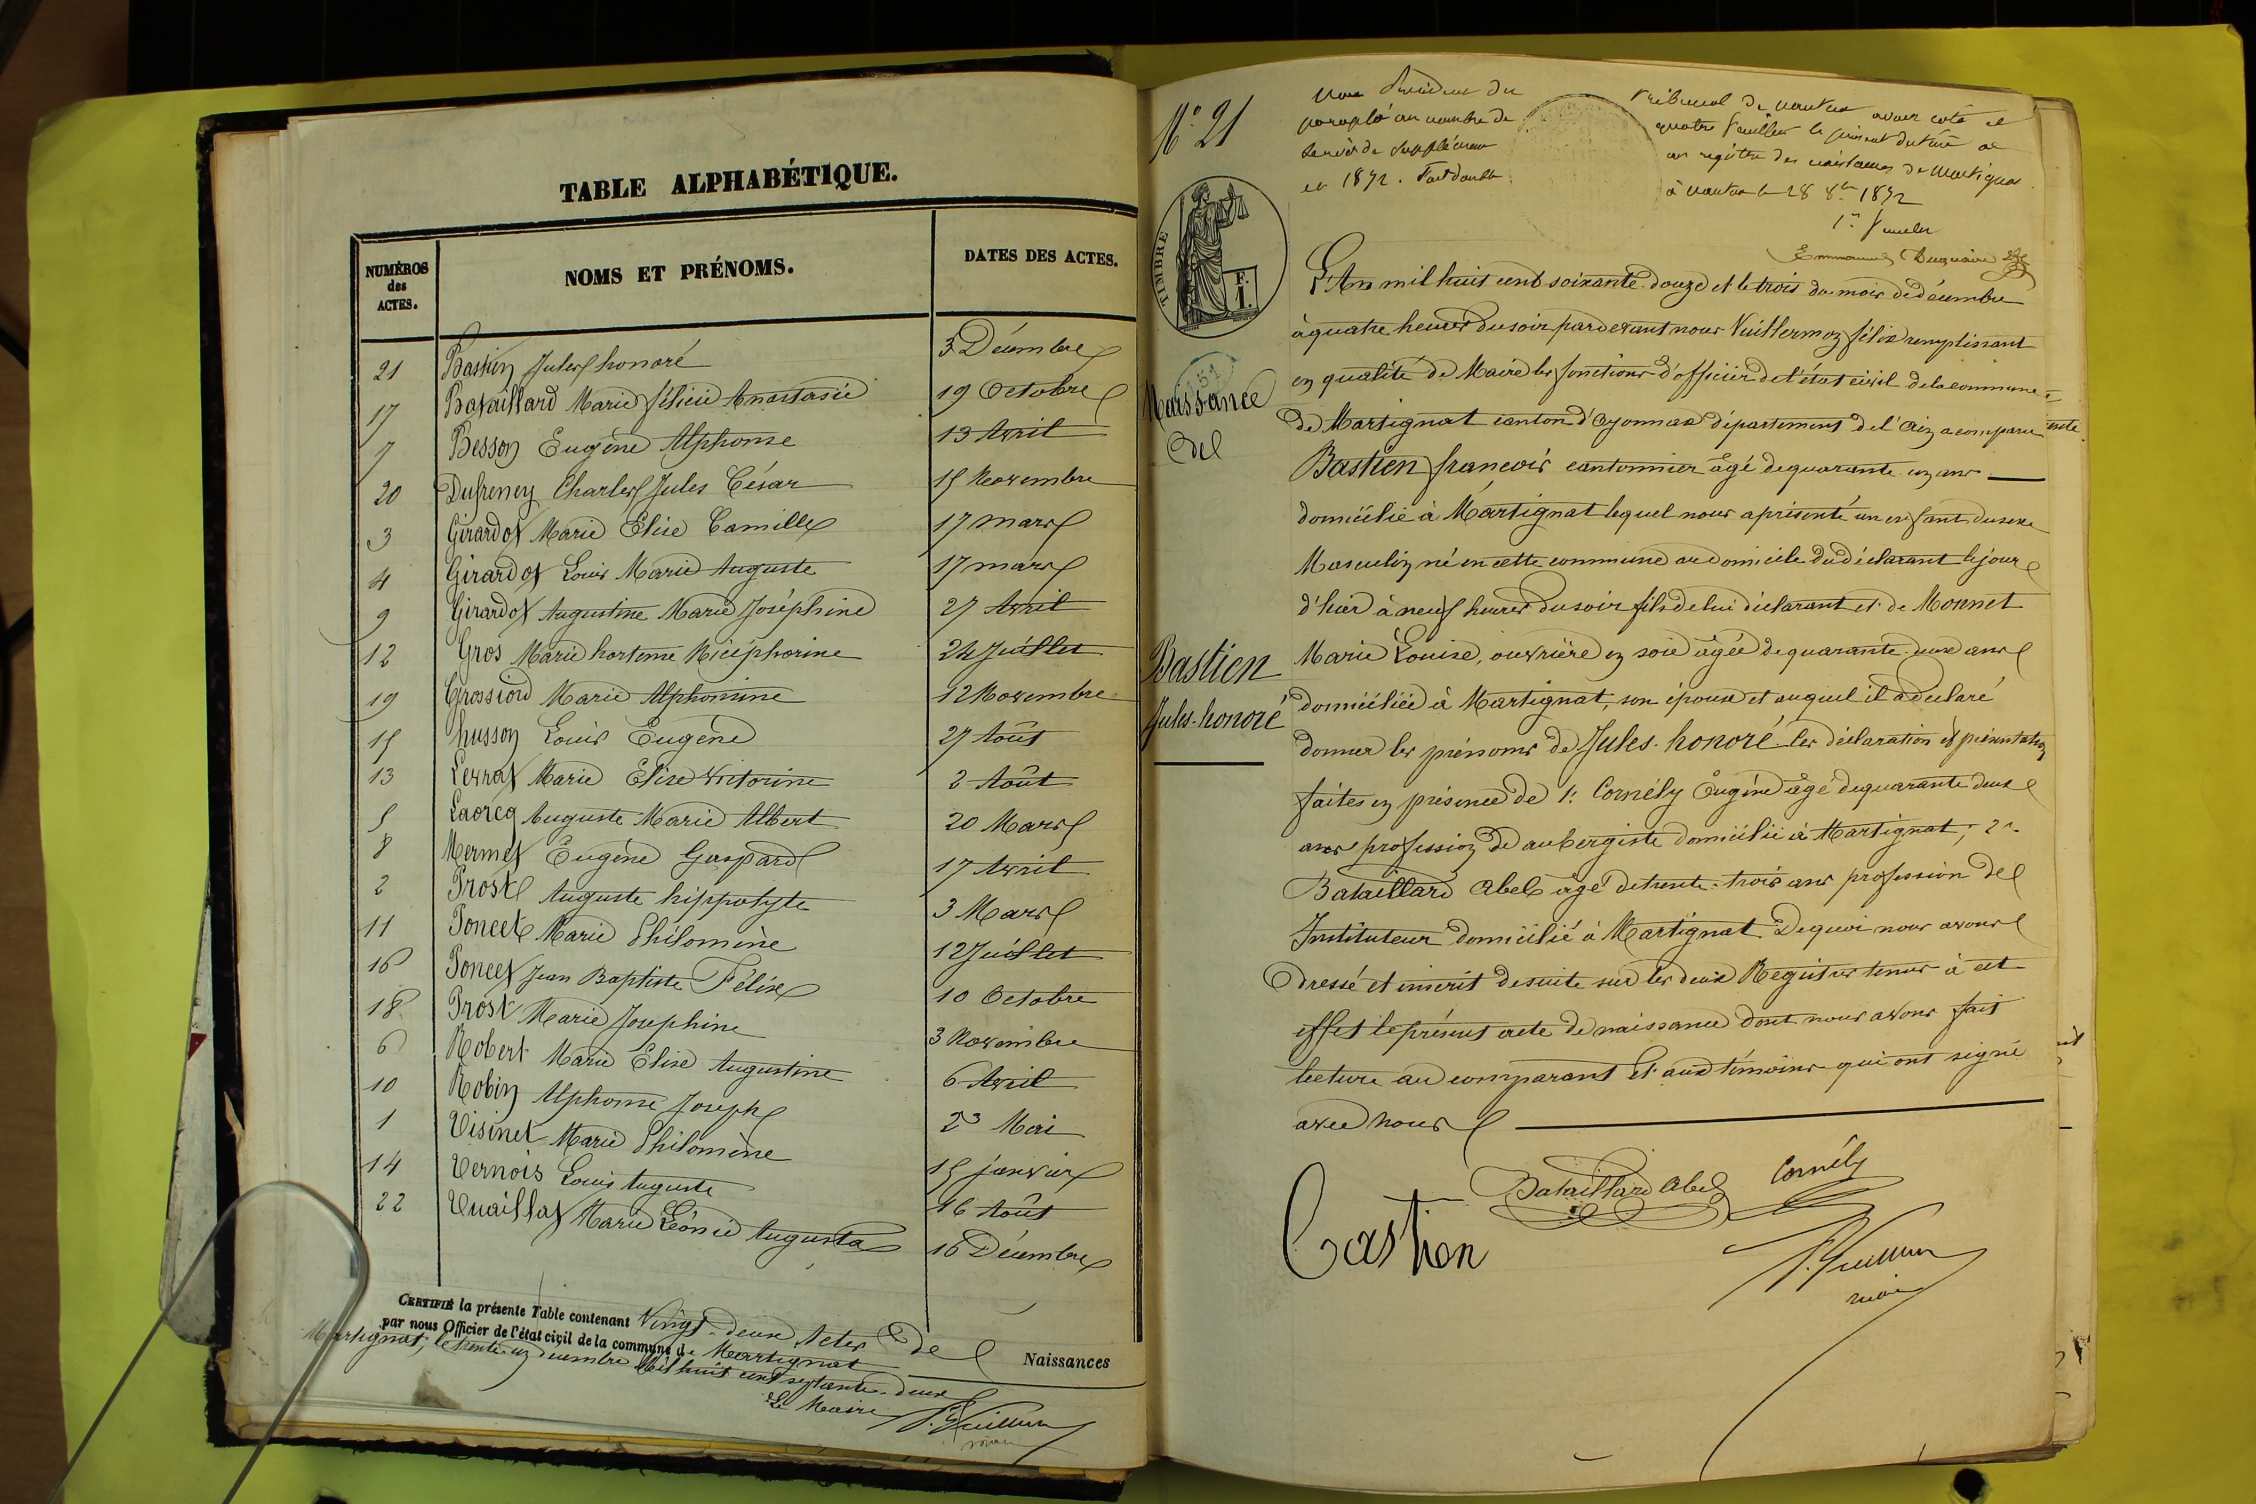 TABLE ALPHABÉTIQUE.
NUMÉROS des ACTES. NOMS ET PRÉNOMS. DATES DES ACTES.
21 Bastien Jules honoré 3 Décembre
17 Bataillard Marie félicie Anastasie 19 Octobre
7 Besson Eugène Alphonse 13 Avril
20 Dufreney Charles Jules César 15 Novembre
3 Girardot Marie Elise Camille 17 mars
4 Girardot Louis Marie Auguste 17 mars
9 Girardot Augustine Marie Joséphine 27 Avril
12 Gros Marie hortense Nicéphorine 24 Juillet
19 Grossiord Marie Alphonsine 12 Novembre
15 husson Louis Eugène 27 Août
13 Levrat Marie Elise Victorine 2 Août
5 Lacroq Auguste Marie Albert 20 Mars
8 Mermet Eugène Gaspard 17 Avril
2 Prost Auguste hippolyte 3 Mars
11 Poncet Marie Philomène 12 Juillet
16 Poncet Jean Baptiste Félix 10 Octobre
18 Prost Marie Josephine 3 Novembre
6 Robert Marie Elise Augustine 6 Avril
10 Robin Alphonse Joseph 23 Mai
1 Visinet Marie Philomène 15 janvier
14 Vernois Louis Auguste 16 Août
22 Vuaillat Marie Léonie Augusta 16 Décembre
CERTIFIÉ la présente Table contenant Vingt-deux Actes de Naissances
par nous Officier de l'état civil de la commune de Martignat
Martignat, le trente un décembre Mil huit cent septante-deux
Le Maire
N° 21
Nous Président du Tribunal de Nantua avons coté et
paraphé au nombre de quatre feuilles le présent
servir de supplément au registre des naissances de Martignat
en 1872. à Nantua le 28 8bre 1872
TIMBRE
F. I.
L'An mil huit cent soixante-douze et le trois du mois de décembre
à quatre heures du soir pardevant nous Vuillermoz félix remplissant
en qualité de Maire les fonctions d'officier de l'état civil de la commune
Naissance
de Martignat canton d'Oyonnax département de l'Ain a comparu
de
Bastien françois cantonnier âgé de quarante un ans
domicilié à Martignat lequel nous a présenté un enfant du sexe
Masculin né en cette commune au domicile du déclarant le jour
d'hier à neuf heures du soir fils de lui déclarant et de Monnet
Bastien
Marie Louise, ouvrière en soie âgée de quarante-deux ans
domiciliée à Martignat, son épouse et auquel il a déclaré
Jules-honoré
donner les prénoms de Jules-honoré les déclaration et présentation
faites en présence de 1° Cornély Eugène âgé de quarante deux
ans profession de aubergiste domicilié à Martignat; 2°
Bataillard Abel âgé de trente-trois ans profession de
Instituteur domicilié à Martignat. De quoi nous avons
dressé et inscrit de suite sur les deux Registres tenus à cet
effet le présent acte de naissance dont nous avons fait
lecture au comparant et aux témoins qui ont signé
avec nous
Bataillard Abel Cornély
Bastien
maire